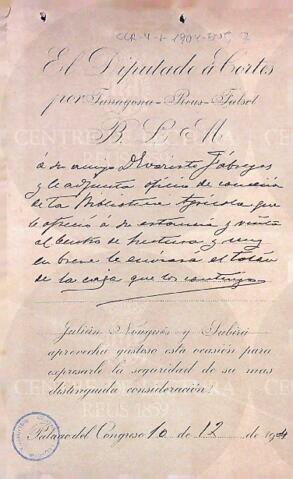 CCR-4-1-1904-
El Diputado á Córtes
por Tarragona-Reus-Falset
B. L. M.
á su amigo D. Evaristo Fábregas
y le adjunta oficio de concesión
de la Biblioteca Agrícola que
le ofreció á su estancia y visita
al Centro de Lectura y muy
en breve le enviará el talón
de la caja que los contenga
Julián Nougués y Subirá
aprovecha gustoso esta ocasión para
expresarle la seguridad de su mas
distinguida consideración.
Palacio del Congreso 10 de 12 de 1904
CENTRE DE LECTURA
REUS 1859